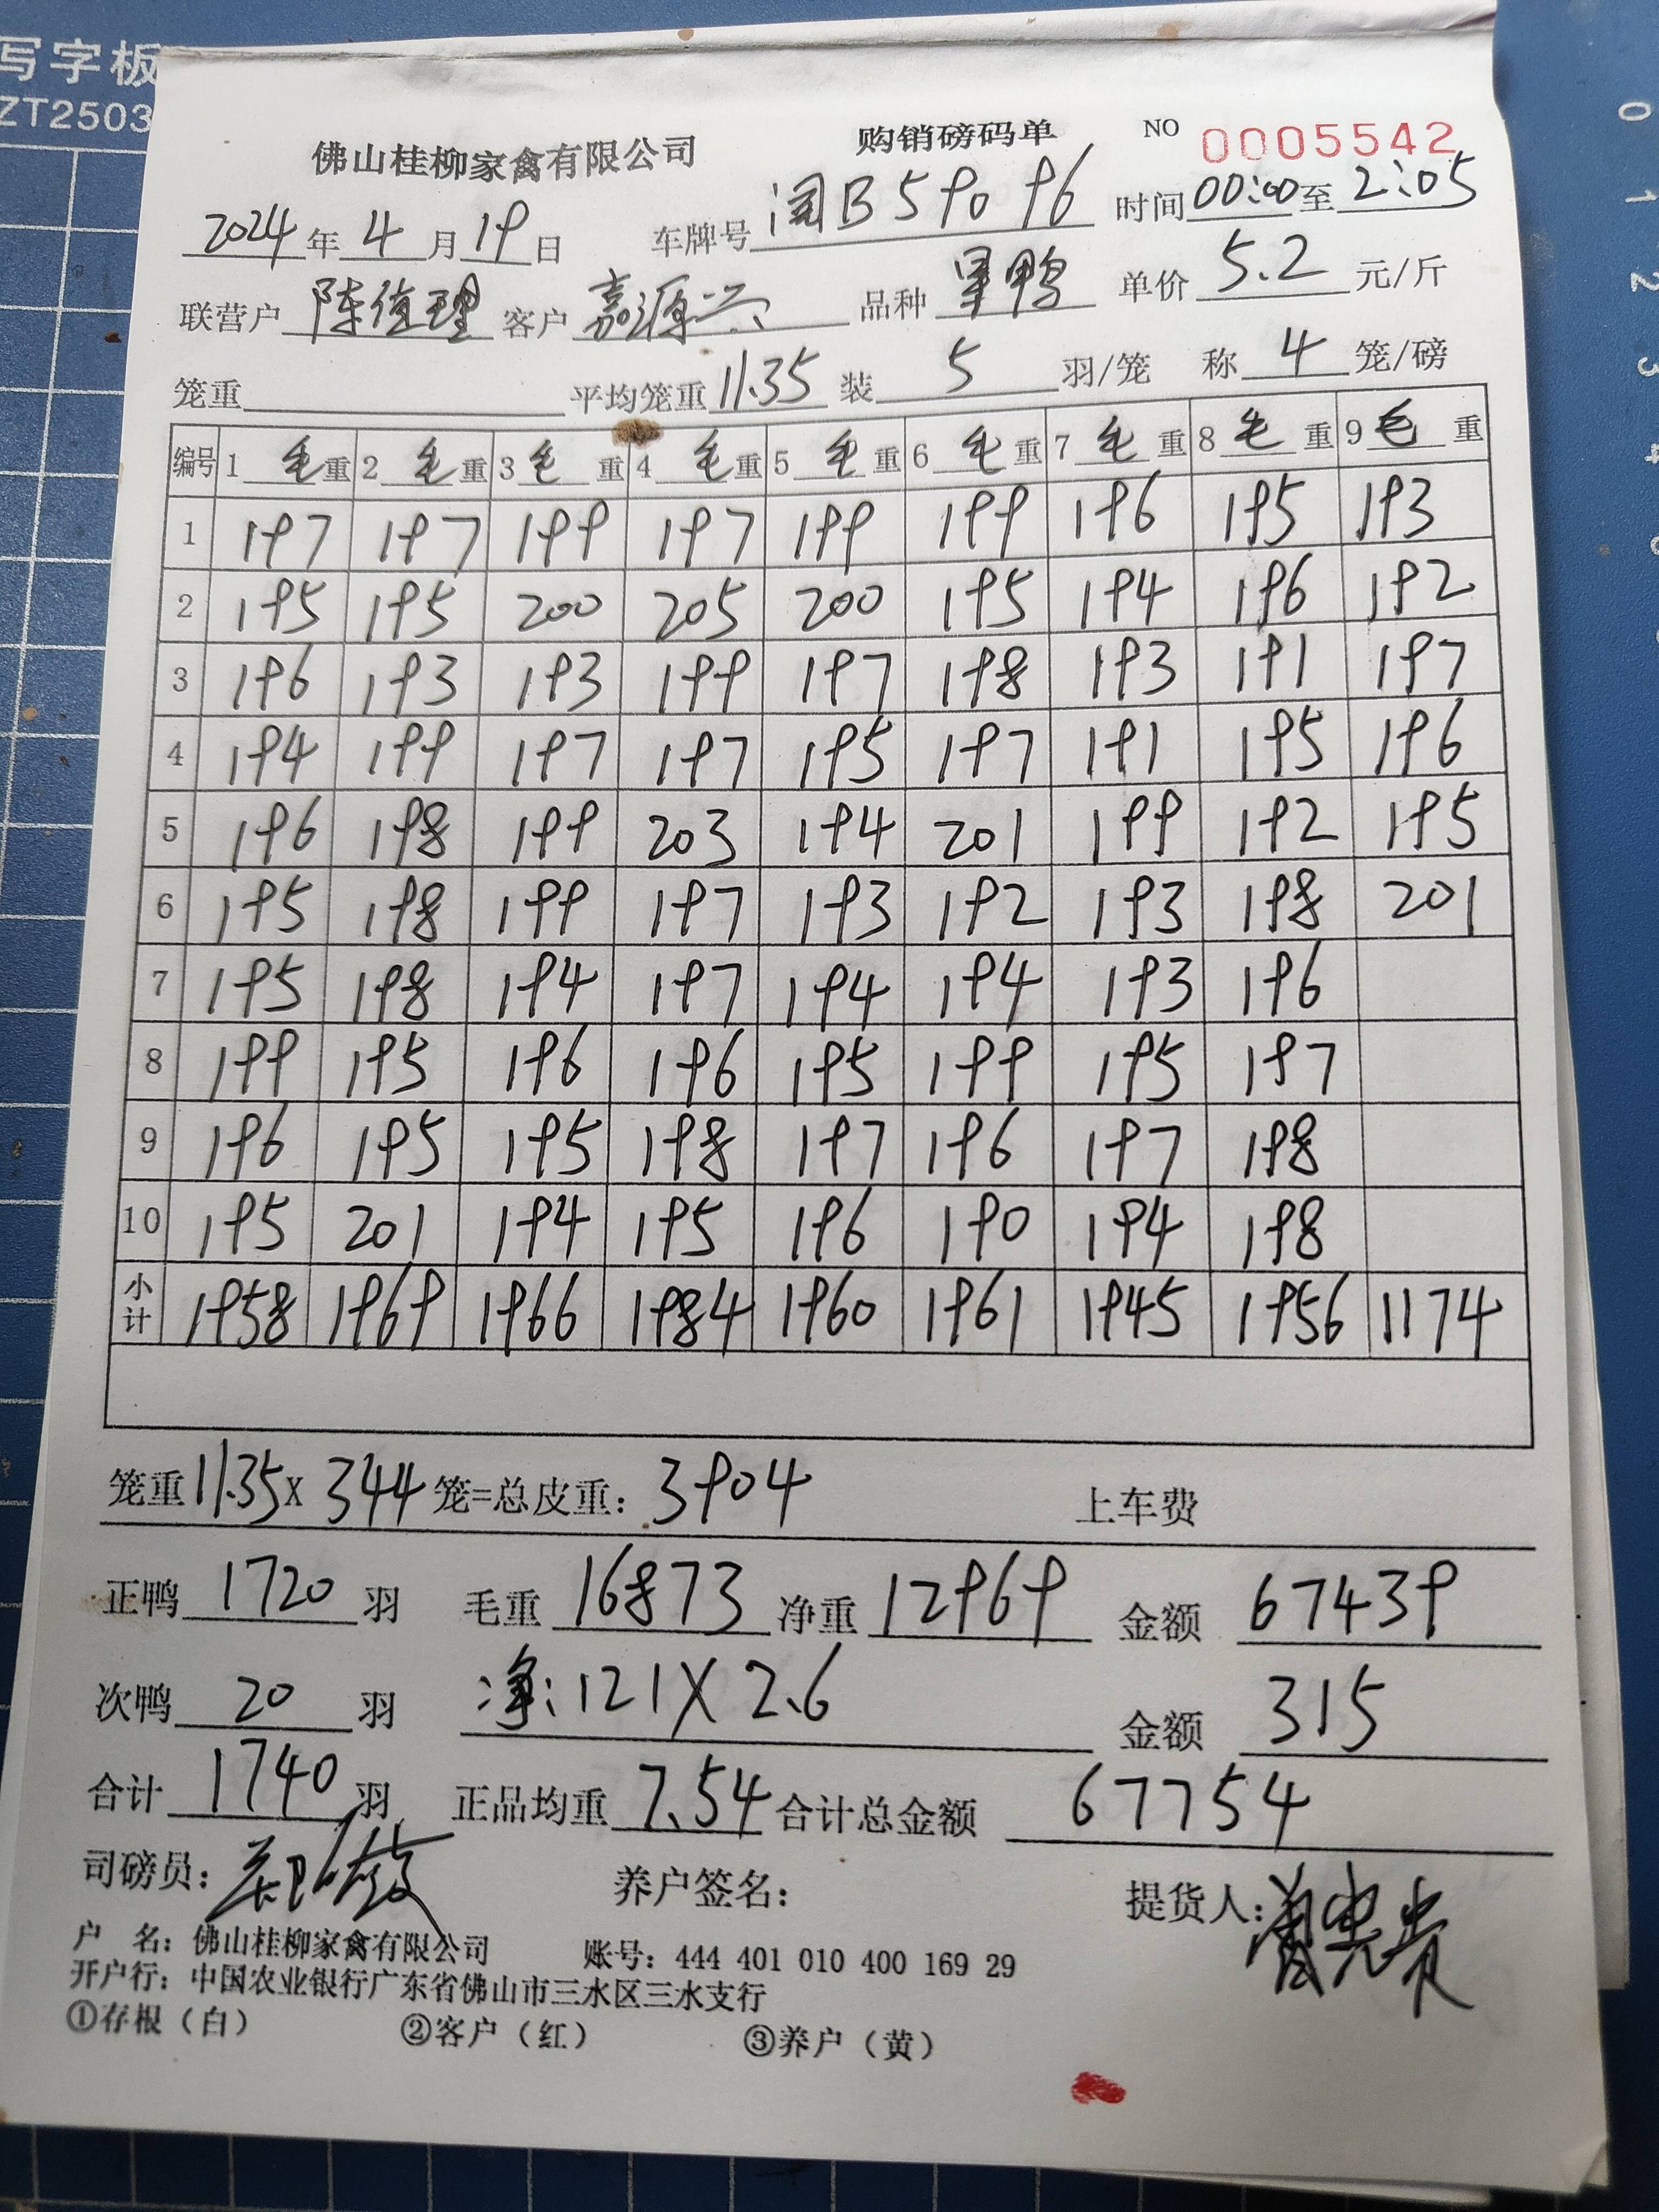 写字板
ZT2503
佛山桂柳家禽有限公司 购销磅码单 NO 0005542
2024年4月19日 车牌号 B59096 时间00:00至2:05
联营户 陈 理 客户 嘉源兴 品种 鸭 单价 5.2 元/斤
笼重 平均笼重 11.35 装 5 羽/笼 称 4 笼/磅
编号 1 毛重 2 毛重 3 毛重 4 毛重 5 毛重 6 毛重 7 毛重 8 毛重 9 毛重
1 197 197 199 197 199 199 196 195 193
2 195 195 200 205 200 195 194 196 192
3 196 193 193 199 197 198 193 191 197
4 194 199 197 197 195 197 191 195 196
5 196 198 199 203 194 201 199 192 195
6 195 198 199 197 193 192 193 198 201
7 195 198 194 197 194 194 193 196
8 199 195 196 196 195 199 195 197
9 196 195 195 198 197 196 197 198
10 195 201 194 195 196 190 194 198
小计 1958 1969 1966 1984 1960 1961 1945 1956 1174
笼重 11.35 X 344 笼=总皮重: 3904 上车费
正鸭 1720 羽 毛重 16873 净重 12969 金额 67439
次鸭 20 羽 净:121X2.6 金额 315
合计 1740 羽 正品均重 7.54 合计总金额 67754
司磅员: 养户签名: 提货人:
户 名: 佛山桂柳家禽有限公司 账号: 444 401 010 400 169 29
开户行: 中国农业银行广东省佛山市三水区三水支行
①存根（白） ②客户（红） ③养户（黄）